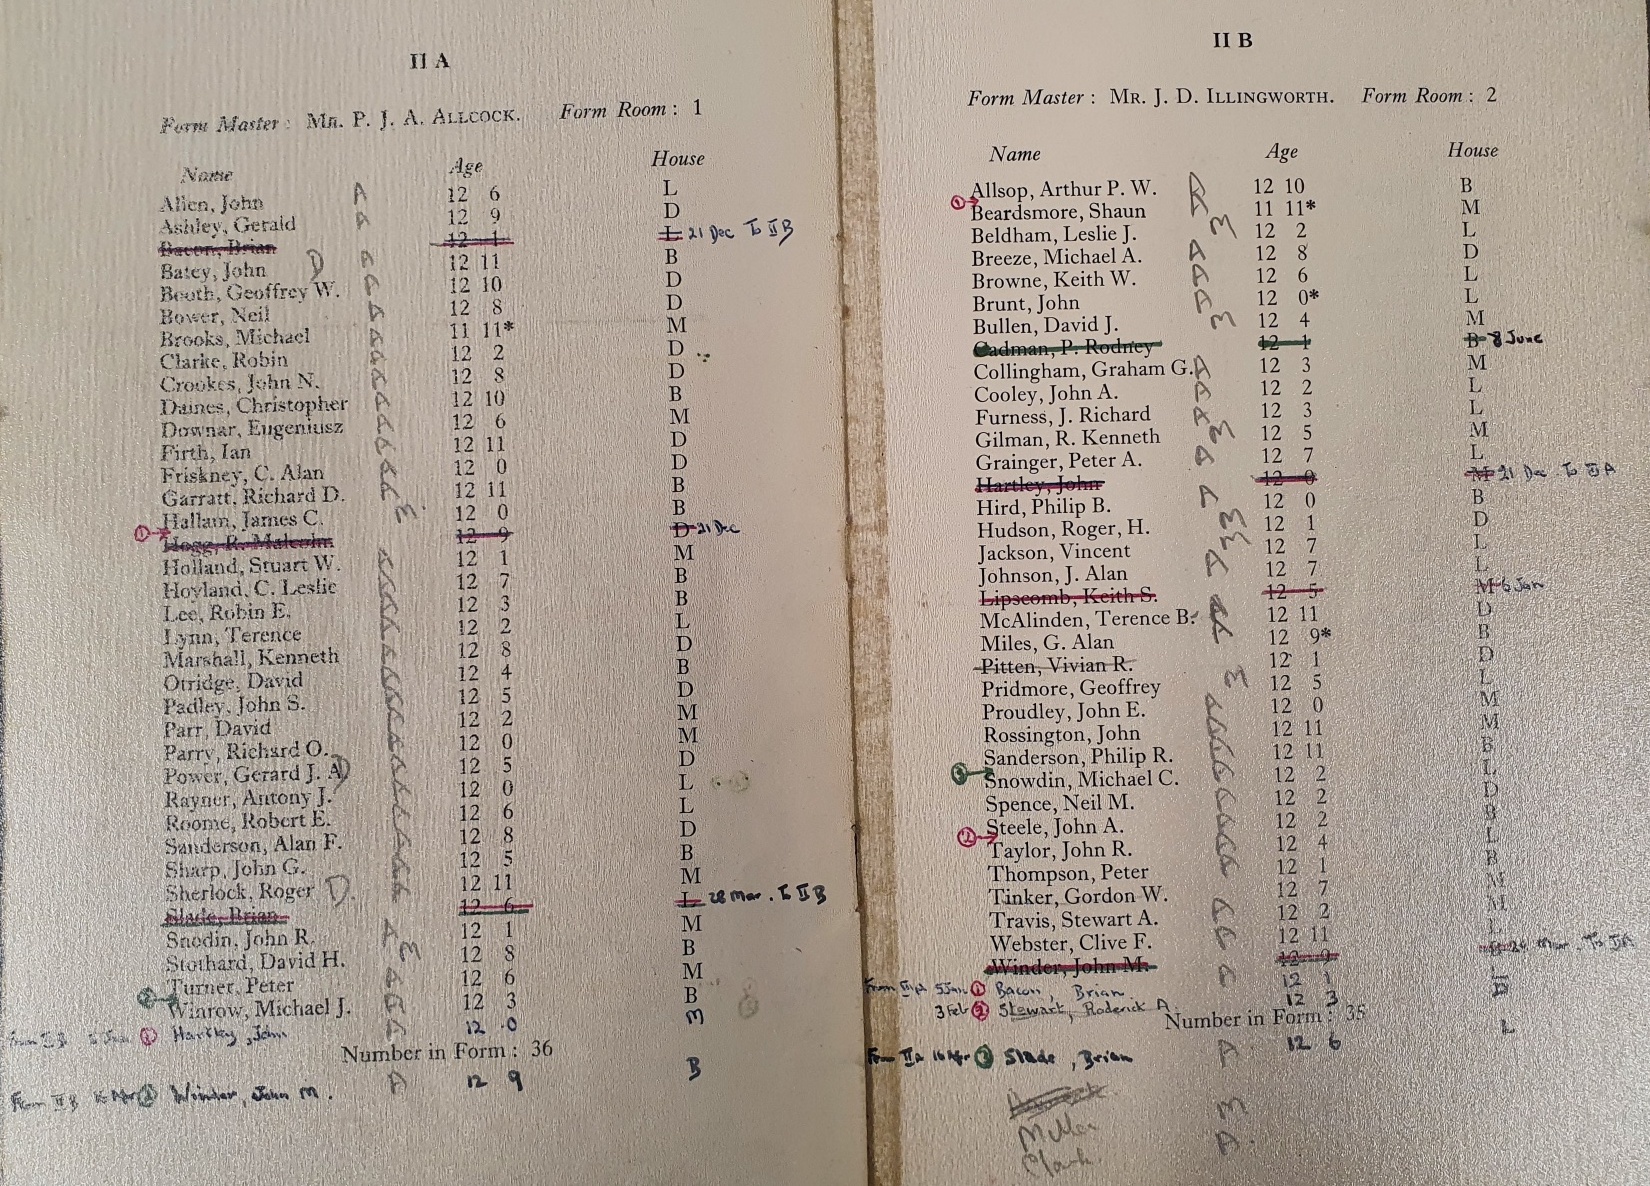 II A
Form Master : MR. P. J. A. ALLCOCK. Form Room : 1
Name Age House
Allen, John A 12 6 L
Ashley, Gerald A 12 9 D
Bacon, Brian 12 1 L 21 Dec To IIB
Batey, John D A 12 11 B
Booth, Geoffrey W. A 12 10 D
Bower, Neil A 12 8 D
Brooks, Michael A 11 11* M
Clarke, Robin A 12 2 D
Crookes, John N. A 12 8 D
Daines, Christopher A 12 10 B
Downar, Eugeniusz A 12 6 M
Firth, Ian A 12 11 D
Friskney, C. Alan A 12 0 D
Garratt, Richard D. A 12 11 B
Hallam, James C. E 12 0 B
① Hogg, R. Malcolm 12 9 D 21 Dec
Holland, Stuart W. A 12 1 M
Hoyland, C. Leslie A 12 7 B
Lee, Robin E. A 12 3 B
Lynn, Terence A 12 2 L
Marshall, Kenneth A 12 8 D
Otridge, David A 12 4 B
Padley, John S. A 12 5 D
Parr, David A 12 2 M
Parry, Richard O. A 12 0 M
Power, Gerard J. A. D A 12 5 D
Rayner, Antony J. A 12 0 L
Roome, Robert E. A 12 6 L
Sanderson, Alan F. A 12 8 D
Sharp, John G. A 12 5 B
Sherlock, Roger D. A 12 11 M
Slade, Brian 12 6 L 28 Mar. To IIB
Snodin, John R. A 12 1 M
Stothard, David H. E 12 8 B
Turner, Peter A 12 6 M
② Winrow, Michael J. A 12 3 B
From IIB 5 Jan ① Hartley, John A 12 0 M
Number in Form : 36
From IIB 16 Apr ② Winder, John M. A 12 9 B
II B
Form Master : MR. J. D. ILLINGWORTH. Form Room : 2
Name Age House
Allsop, Arthur P. W. A 12 10 B
① Beardsmore, Shaun A 11 11* M
Beldham, Leslie J. E 12 2 L
Breeze, Michael A. A 12 8 D
Browne, Keith W. A 12 6 L
Brunt, John A 12 0* L
Bullen, David J. E 12 4 M
Cadman, P. Rodney 12 1 B 8 June
Collingham, Graham G. A 12 3 M
Cooley, John A. A 12 2 L
Furness, J. Richard A 12 3 L
Gilman, R. Kenneth E 12 5 M
Grainger, Peter A. A 12 7 L
Hartley, John 12 0 M 21 Dec. To IIA
Hird, Philip B. A 12 0 B
Hudson, Roger, H. E 12 1 D
Jackson, Vincent E 12 7 L
Johnson, J. Alan A 12 7 L
Lipscomb, Keith S. 12 5 M 6 Jan
McAlinden, Terence B. A 12 11 D
Miles, G. Alan A 12 9* B
Pitten, Vivian R. 12 1 D
Pridmore, Geoffrey E 12 5 L
Proudley, John E. A 12 0 M
Rossington, John A 12 11 M
Sanderson, Philip R. A 12 11 B
③ Snowdin, Michael C. A 12 2 L
Spence, Neil M. A 12 2 D
Steele, John A. A 12 2 B
② Taylor, John R. A 12 4 L
Thompson, Peter A 12 1 B
Tinker, Gordon W. 12 7 M
Travis, Stewart A. A 12 2 M
Webster, Clive F. A 12 11 L
Winder, John M. 12 9 B 24 Mar. To IIA
From IIA 5 Jan ① Bacon, Brian A 12 1 L
3 Feb ② Stewart, Roderick A. 12 3 B
Number in Form : 35
From IIA 16 Apr ③ Slade, Brian A 12 6 L
Miller E
Clark. A